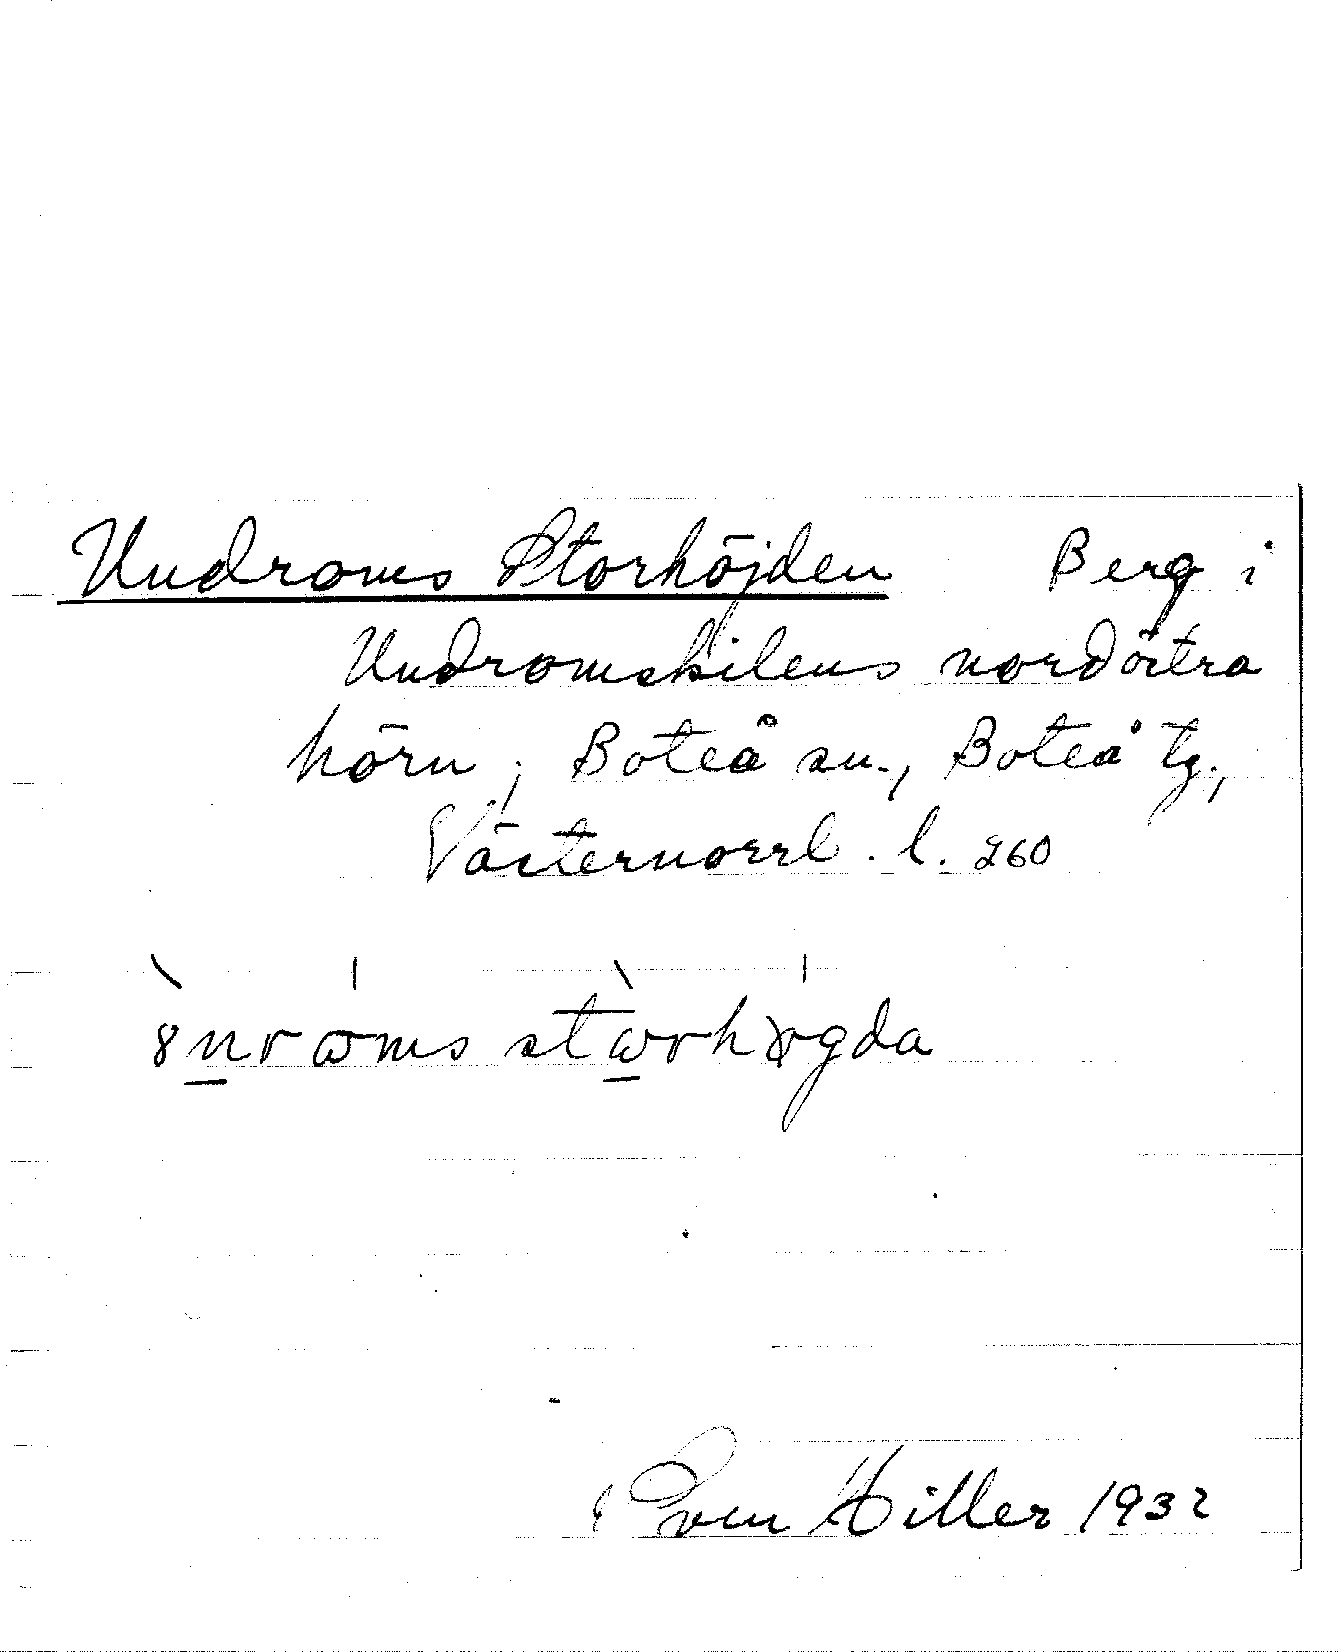 Undroms Storhöjden Berg i
Undromskilens nordöstra
hörn, Boteå sn., Boteå tg.,
Västernorrl. l. 260
8nrωms stωrhøgda
Sven Hiller 1932